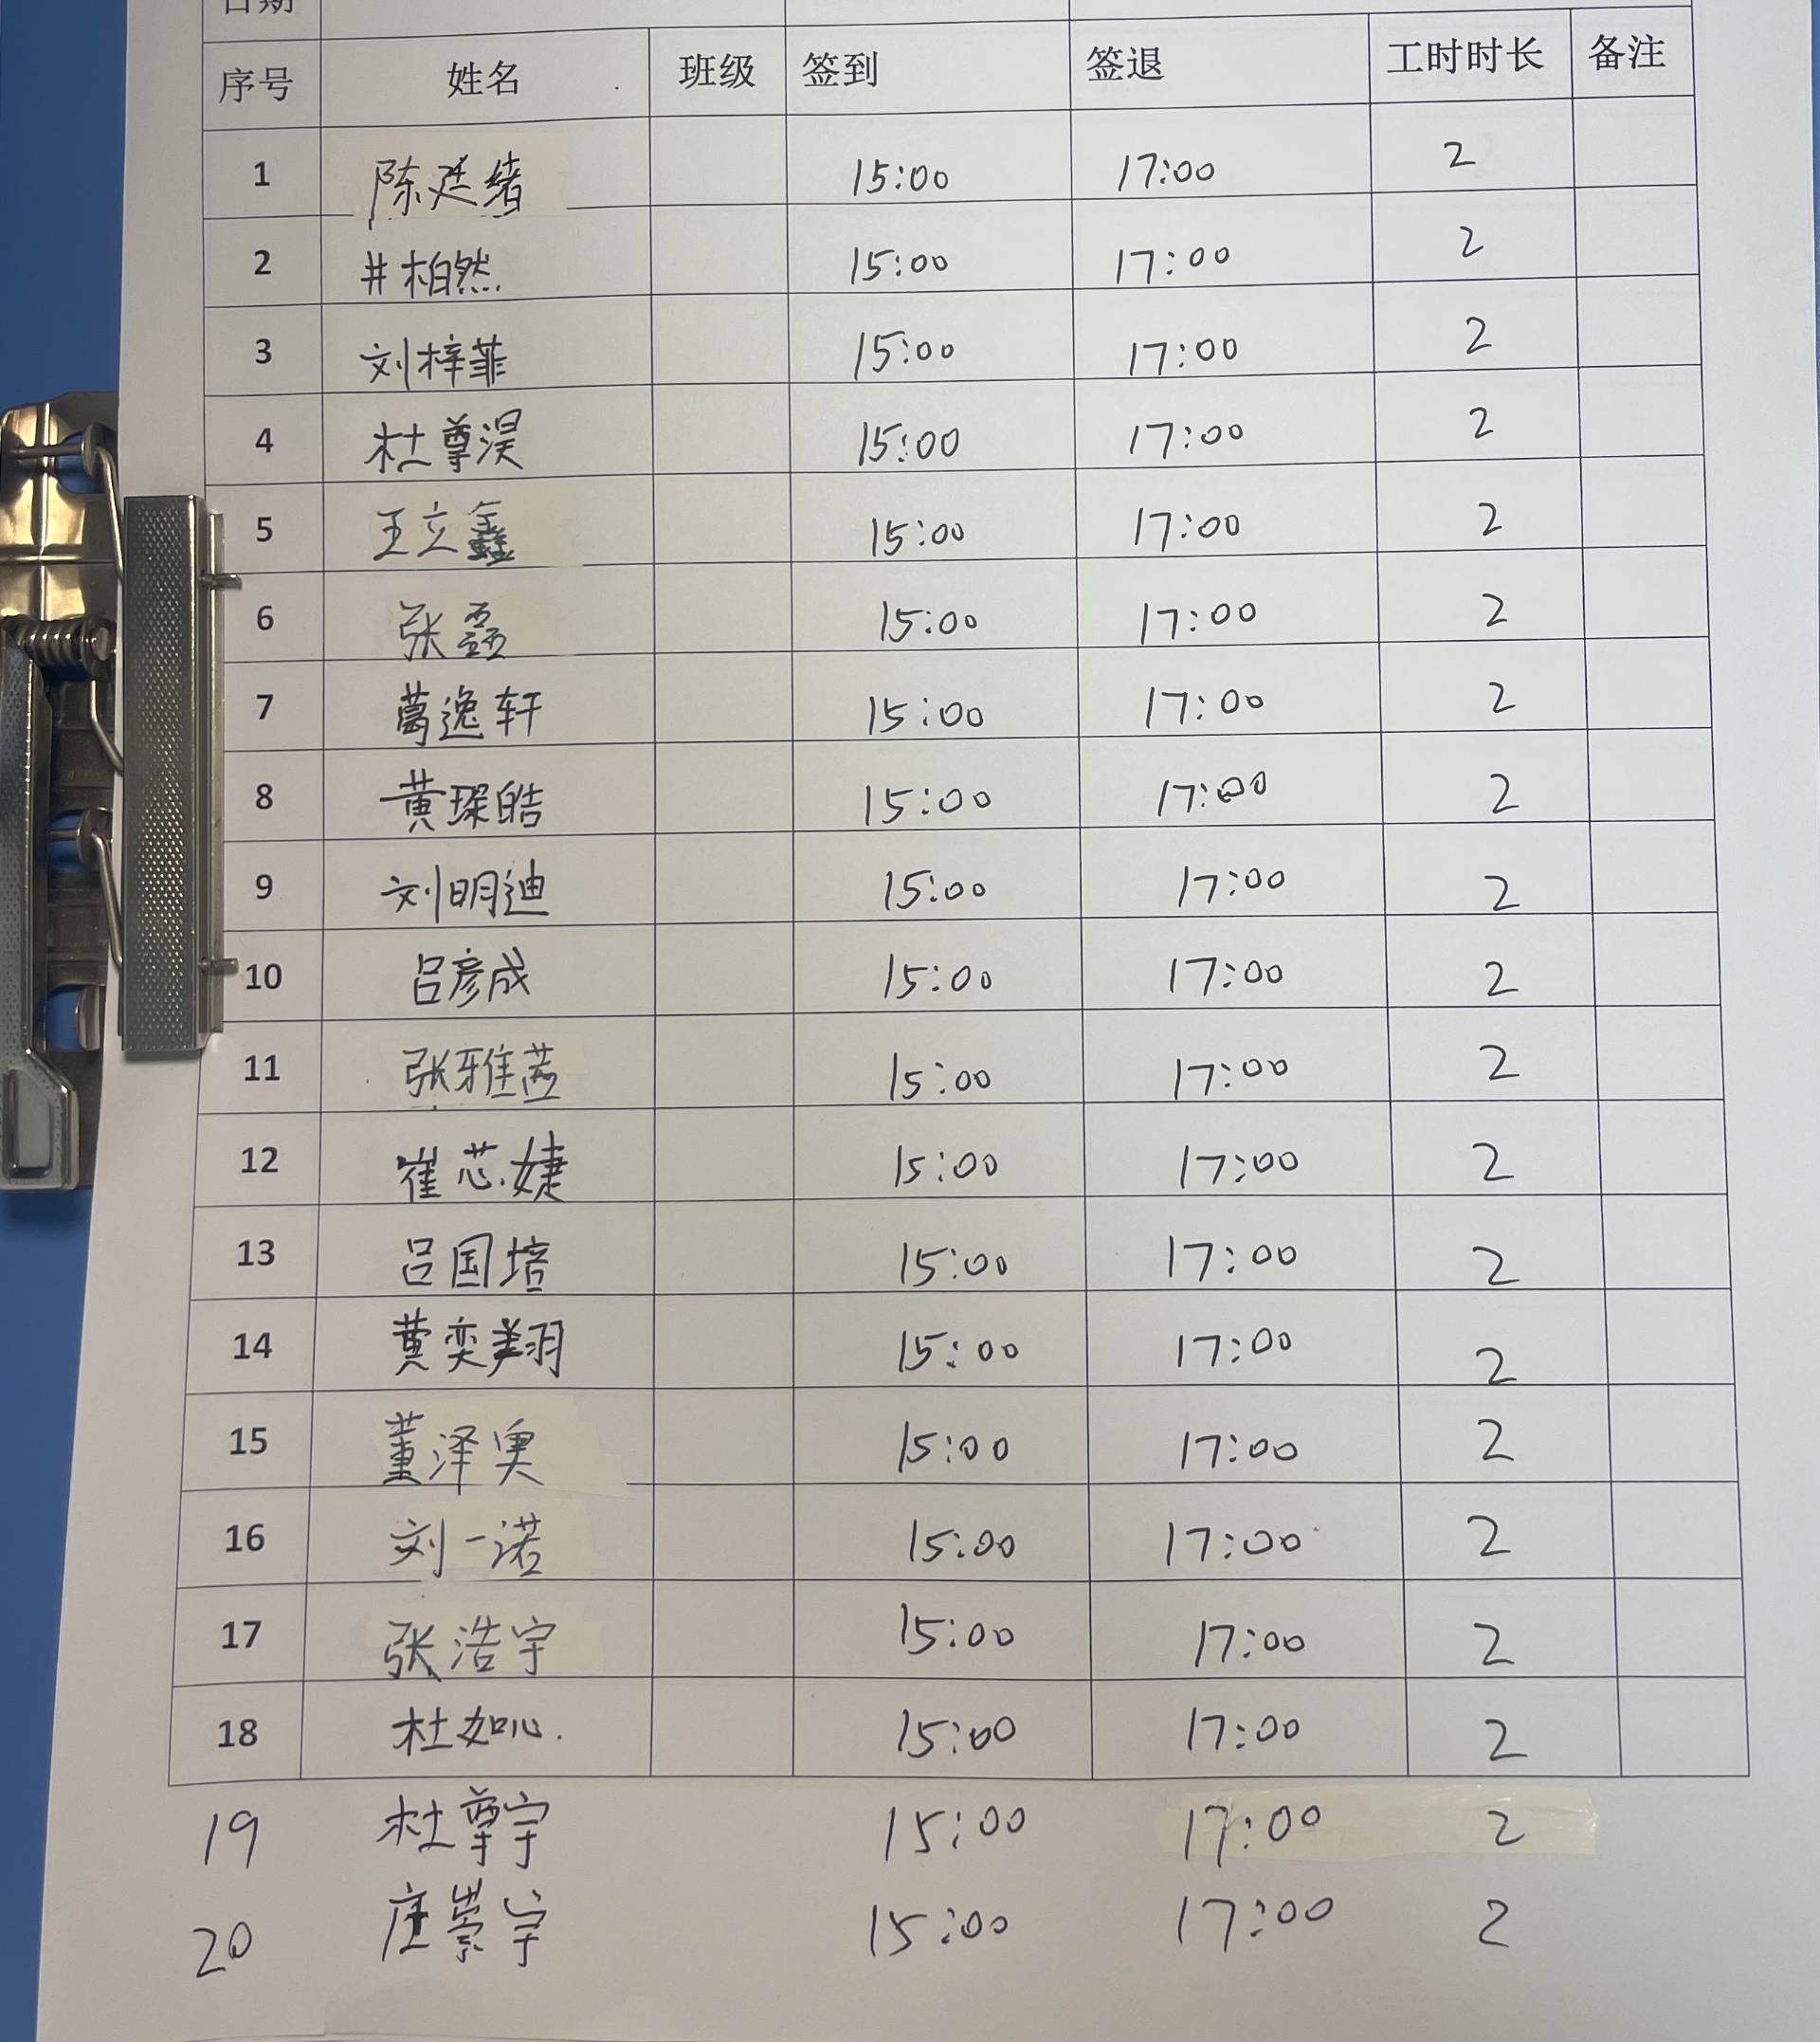 日期
序号 姓名 班级 签到 签退 工时时长 备注
1 陈廷绪 15:00 17:00 2
2 井柏然 15:00 17:00 2
3 刘梓菲 15:00 17:00 2
4 杜尊淏 15:00 17:00 2
5 王立鑫 15:00 17:00 2
6 张磊 15:00 17:00 2
7 葛逸轩 15:00 17:00 2
8 黄琛皓 15:00 17:00 2
9 刘明迪 15:00 17:00 2
10 吕彦成 15:00 17:00 2
11 张雅茜 15:00 17:00 2
12 崔芯婕 15:00 17:00 2
13 吕国培 15:00 17:00 2
14 黄奕翔 15:00 17:00 2
15 董泽奥 15:00 17:00 2
16 刘一诺 15:00 17:00 2
17 张浩宇 15:00 17:00 2
18 杜如心 15:00 17:00 2
19 杜尊宇 15:00 17:00 2
20 庄崇宇 15:00 17:00 2